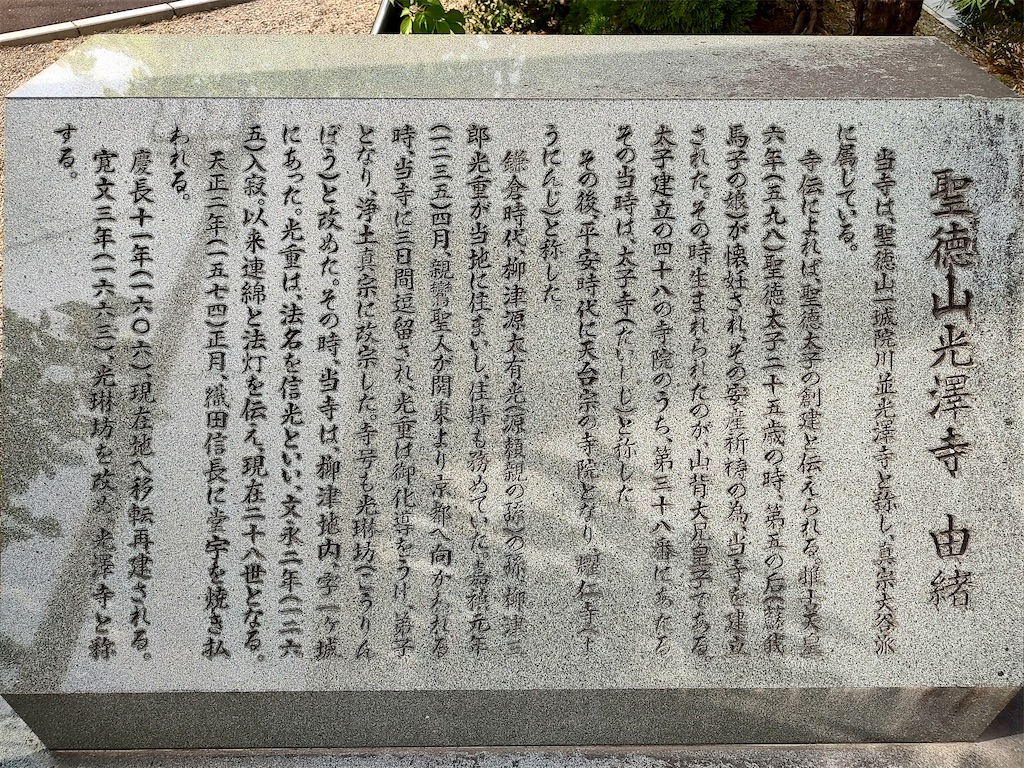 聖徳山光澤寺 由緒
当寺は、聖徳山一城院川並光澤寺と称し、真宗大谷派
に属している。
寺伝によれば、聖徳太子の創建と伝えられる、推古天皇
六年(五九八)聖徳太子二十五歳の時、第五の后(蘇我
馬子の娘)が懐妊され、その安産祈祷の為、当寺を建立
された。その時生まれられたのが、山背大兄皇子である
太子建立の四十八の寺院のうち、第三十八番にあたる
その当時は、太子寺(たいしじ)と称した
その後、平安時代に天台宗の寺院となり、耀仁寺(よ
うにんじ)と称した
鎌倉時代、柳津源太有光(源頼親の孫)の孫、柳津三
郎光重が当地に住まいし、住持も務めていた、嘉禎元年
(一二三五)四月、親鸞聖人が関東より京都へ向かわれる
時、当寺に三日間逗留され、光重は御化導をうけ、弟子
となり、浄土真宗に改宗した、寺号も光琳坊(こうりん
ぼう)と改めた。その時、当寺は、柳津地内、字一ヶ城
にあった。光重は、法名を信光といい、文永二年(一二六
五)入寂。以来連綿と法灯を伝え、現在二十八世となる。
天正二年(一五七四)正月、織田信長に堂宇を焼き払
われる。
慶長十一年(一六〇六)、現在地へ移転再建される。
寛文三年(一六六三)、光琳坊を改め、光澤寺と称
する。